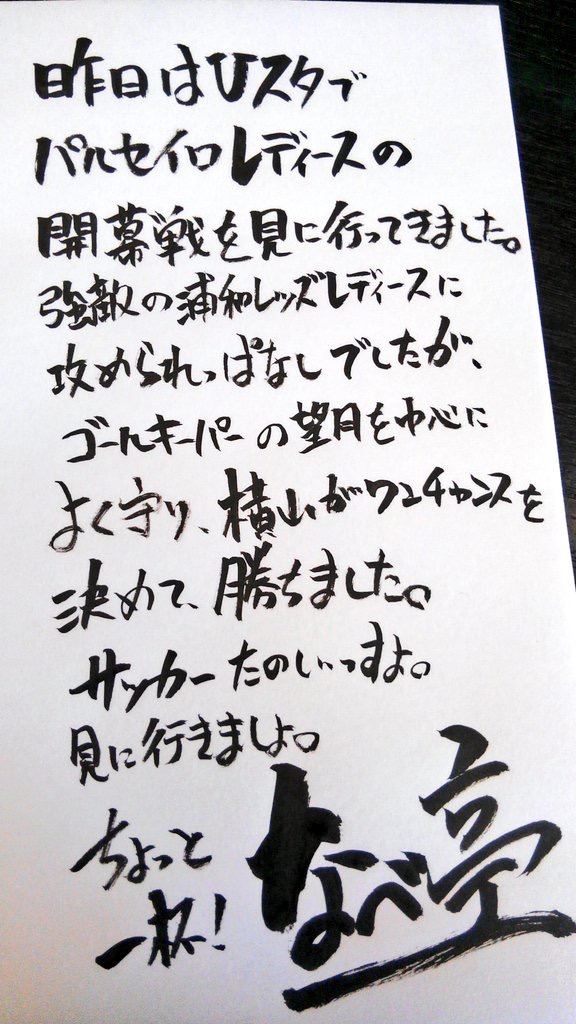 昨日はUスタで
パルセイロレディースの
開幕戦を見に行ってきました。
強敵の浦和レッズレディースに
攻められっぱなしでしたが、
ゴールキーパーの望月を中心に
よく守り、横山がワンチャンスを
決めて、勝ちました。
サッカーたのしいっすよ。
見に行きましょ。
ちょっと
一杯!
なべ亭